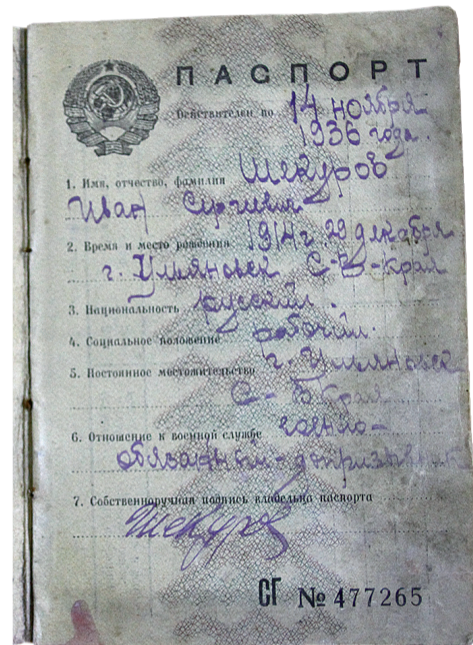 ПАСПОРТ
Действителен по 14 ноября
1936 года.
1. Имя, отчество, фамилия Шекуров
Иван Сергеевич
2. Время и место рождения 1914 г 29 декабря
г. Ульяновск С-В-Края
3. Национальность русский.
4. Социальное положение рабочий.
5. Постоянное местожительство г. Ульяновск
С-В Края
6. Отношение к военной службе военно-
обязанный-допризывник
7. Собственноручная подпись владельца паспорта
Шекуров
СГ № 477265